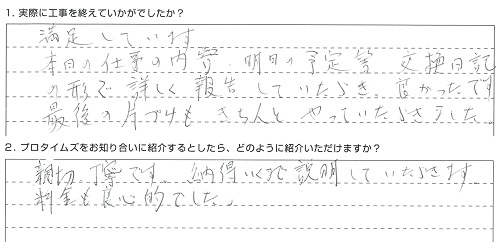 1. 実際に工事を終えていかがでしたか？
満足しています
本日の仕事の内容、明日の予定等 交換日記
の形で詳しく報告していただき、良かったです
最後の片づけもきちんとやっていただきました。
2. プロタイムズをお知り合いに紹介するとしたら、どのように紹介いただけますか？
親切、丁寧です。納得いくまで説明していただきます
料金も良心的でした。